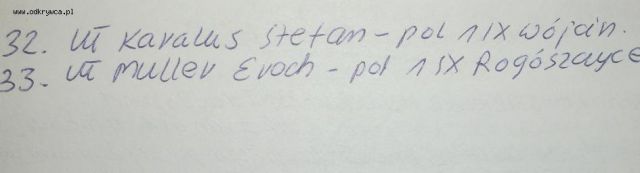 www.odkrywca.pl
32. VII Karalus Stefan - pol 1 IX Wójcin.
33. VII Muller Eroch - pol 1 IX Rogószayce